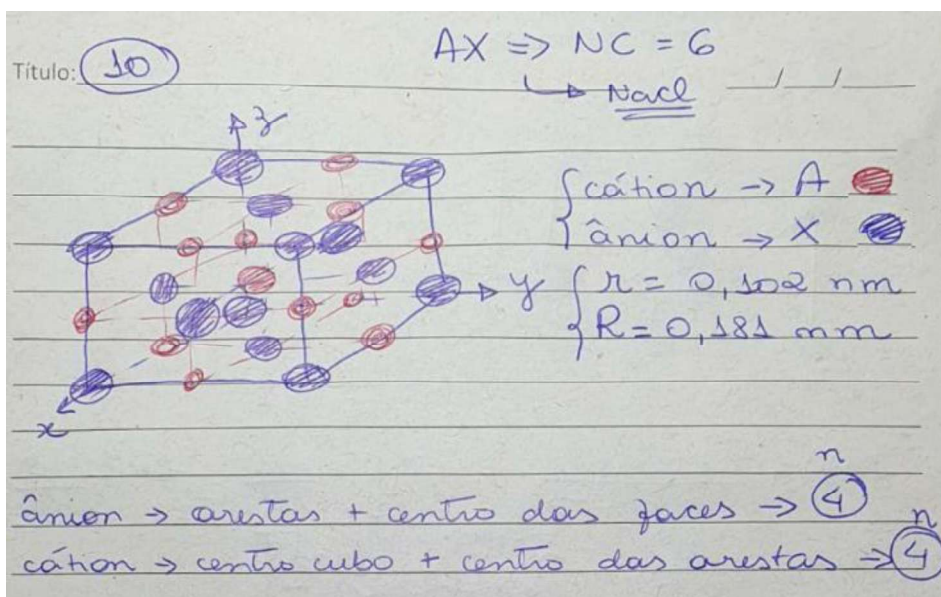 AX => NC = 6
Título: 10
↳ Nacl __/__/__
z
cátion → A
ânion → X
y
r = 0,102 nm
R = 0,181 nm
x
n
ânion → arestas + centro das faces → 4
n
cátion → centro cubo + centro das arestas → 4